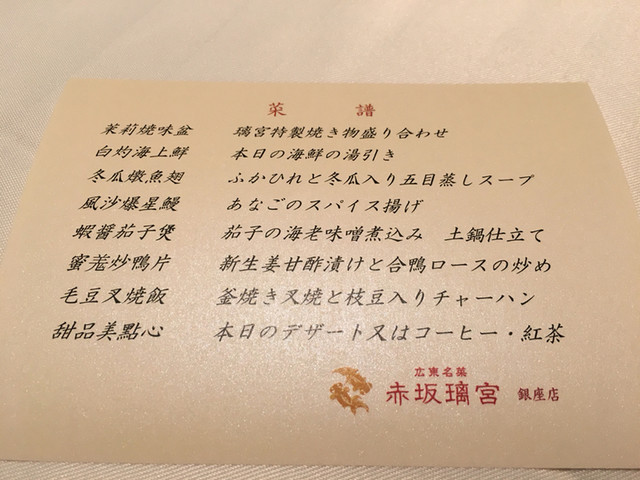 菜 譜
茉莉燒味盆 璃宮特製焼き物盛り合わせ
白灼海上鮮 本日の海鮮の湯引き
冬瓜燉魚翅 ふかひれと冬瓜入り五目蒸しスープ
風沙爆星鰻 あなごのスパイス揚げ
蝦醬茄子煲 茄子の海老味噌煮込み 土鍋仕立て
蜜羌炒鴨片 新生姜甘酢漬けと合鴨ロースの炒め
毛豆叉燒飯 釜焼き叉焼と枝豆入りチャーハン
甜品美點心 本日のデザート又はコーヒー・紅茶
広東名菜
赤坂璃宮 銀座店